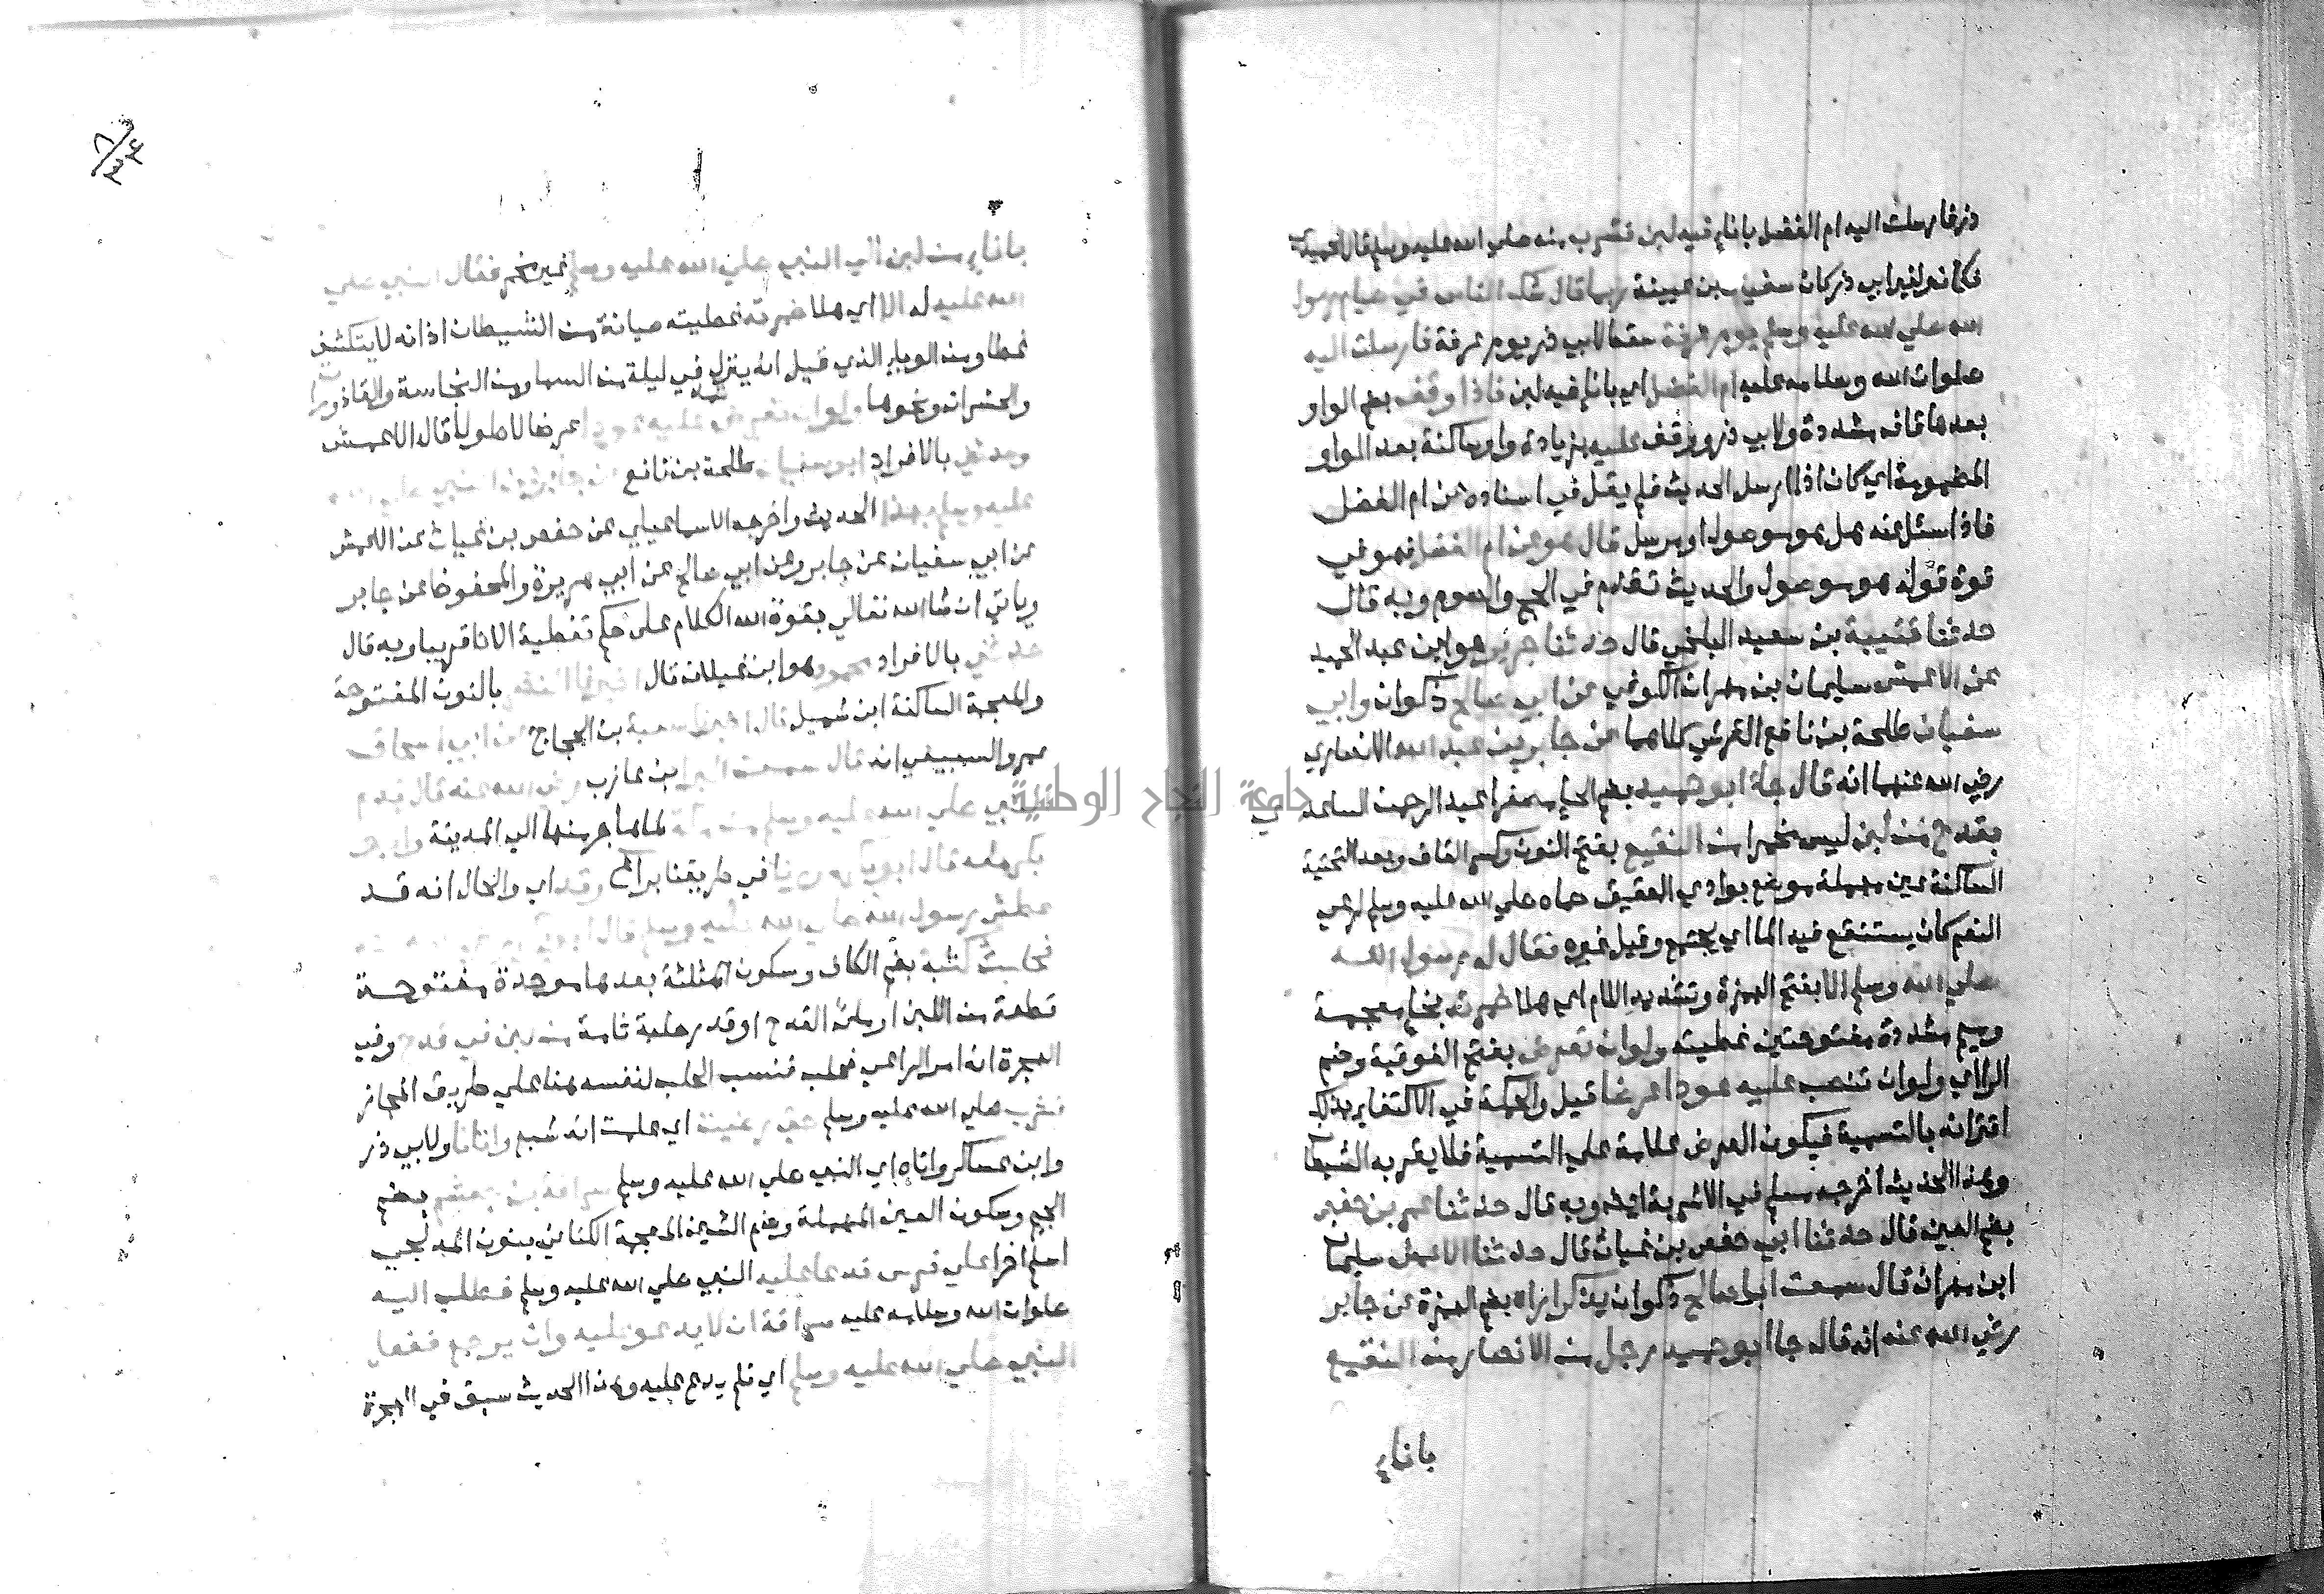 ذر فارسلت اليه ام الفضل باناء فيه لبن فشرب منه صلي الله عليه وسلم قال الحميدي
فكان لغير ابي ذر كان سفيان بن عيينة ربما قال شك الناس في صيام رسول
الله صلي الله عليه وسلم يوم عرفة سقط لابي ذر يوم عرفة فارسلت اليه
صلوات الله وسلامه عليه ام الفضل اي باناء فيه لبن فاذا وقف بضم الواو
بعدها قاف مشددة ولابي ذر ووقف عليه بزيادة واو ساكنة بعد الواو
المضمومة اي كان اذا ارسل الحديث فلم يقل في اسناده عن ام الفضل
فاذا سئل عنه هل هو موصول او مرسل قال هو عن ام الفضل فهو في
قوة قوله هو موصول والحديث تقدم في الحج والصوم وبه قال
حدثنا قتيبة بن سعيد البلخي قال حدثنا جرير هو ابن عبد الحميد
عن الاعمش سليمان بن مهران الكوفي عن ابي صالح ذكوان وابي
سفيان طلحة بن نافع القرشي كلاهما عن جابر بن عبد الله الانصاري
رضي الله عنهما انه قال جاء ابو حميد بضم الحاء مصغرا عبد الرحمن الساعدي
بقدح من لبن ليس مخمرا من النقيع بفتح النون وكسر القاف وبعد التحتية
الساكنة عين مهملة موضع بوادي العقيق حماه صلي الله عليه وسلم لرعي
النعم كان يستنقع فيه الما اي يجتمع وقيل غيره فقال له رسول الله
صلي الله وسلم الا بفتح الهمزة وتشديد اللام اي هلا خمرته بخاء معجمة
وميم مشددة مفتوحتين غطيته ولو ان تعرض بفتح الفوقية وضم
الراء اي ولو ان تنصب عليه عودا عرضا قيل والحكمة في الاكتفاء بذلك
اقترانه بالتسمية فيكون العرض علامة علي التسمية فلا يقربه الشيطان
وهذا الحديث اخرجه مسلم في الاشربة ايضا وبه قال حدثنا عمر بن حفص
بضم العين قال حدثنا ابي حفص بن غياث قال حدثنا الاعمش سليمان
ابن مهران قال سمعت ابا صالح ذكوان يذكر اراه بضم الهمزة عن جابر
رضي الله عنه انه قال جا ابو حميد رجل من الانصار من النقيع
باناء
باناء من لبن الي النبي صلي الله عليه وسلم غير مخمر فقال النبي صلي
الله عليه له الا اي هلا خمرته غطيته صيانة من الشيطان اذ انه لا يتكشف
غطا ومن الوباء الذي قيل انه ينزل في ليلة من السما ومن النجاسة والقاذورات
والحشرات ونحوها ولو ان تعرض عليه عودا عرضا لا طولا قال الاعمش
وحدثني بالافراد ابو سفيان طلحة بن نافع عن جابر عن النبي صلي الله
عليه وسلم بهذا الحديث واخرجه الاسماعيلي عن حفص بن غياث عن الاعمش
عن ابي سفيان عن جابر وعن ابي صالح عن ابي هريرة والمحفوظ عن جابر
وياتي ان شا الله تعالي بقوة الله الكلام علي حكم تغطية الانا قريبا وبه قال
حدثني بالافراد محمود هو ابن غيلان قال اخبرنا النضر بالنون المفتوحة
والمعجمة الساكنة ابن شميل قال اخبرنا شعبة بن الحجاج عن ابي اسحاق
عمرو السبيعي انه قال سمعت البراء بن عازب رضي الله عنه قال قدم
النبي صلي الله عليه وسلم من مكة لما هاجر منها الي المدينة وابو بكر
معه قال ابو بكر مررنا في طريقنا براع وقد اي والحال انه قد
عطش رسول الله صلي الله عليه وسلم قال ابو بكر رضي الله عنه
فحلبت كثبة بضم الكاف وسكون المثلثة بعدها موحدة مفتوحة
قطعة من اللبن او ملء القدح او قدر حلبة ناقة من لبن في قدح وفي
الهجرة انه امر الراعي فحلب فنسب الحلب لنفسه هنا علي طريق المجاز
فشرب صلي الله عليه وسلم حتي رضيت اي علمت انه شبع واتانا ولابي ذر
وابن عساكر واتاه اي النبي صلي الله عليه وسلم سراقة بن جعشم بضم
الجيم وسكون العين المهملة وضم الشين المعجمة الكناني بنون المدلجي
اسلم اخرا علي فرس فدعا عليه النبي صلي الله عليه وسلم فطلب اليه
صلوات الله وسلامه عليه سراقة ان لا يدعو عليه وان يرجع ففعل
النبي صلي الله عليه وسلم اي فلم يدع عليه وهذا الحديث سبق في الهجرة
جامعة النجاح الوطنية